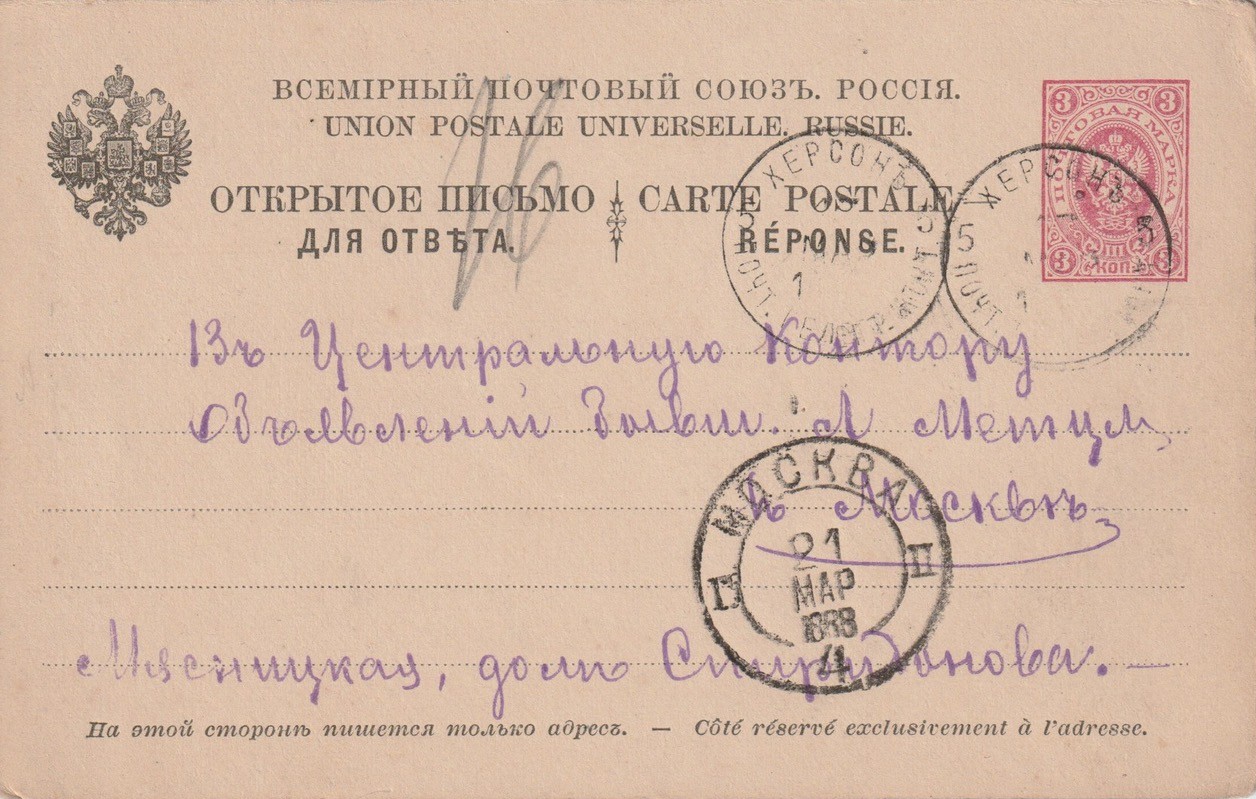 ВСЕМІРНЫЙ ПОЧТОВЫЙ СОЮЗЪ. РОССІЯ.
UNION POSTALE UNIVERSELLE. RUSSIE.
ОТКРЫТОЕ ПИСЬМО CARTE POSTALE
ДЛЯ ОТВѢТА. RÉPONSE.
16
3 3
ПОЧТОВАЯ МАРКА
3 КОП. 3
ХЕРСОНЪ
5 5
ПОЧТ.
1
ХЕРСОНЪ
5 5
ПОЧТ.
1
Въ Центральную Контору
Объявленій бывш. Л Метцл
въ Москвѣ
МОСКВА
II II
21
МАР
1888
4
Мясницкая, домъ Спиридонова. —
На этой сторонѣ пишется только адресъ. — Côté réservé exclusivement à l'adresse.